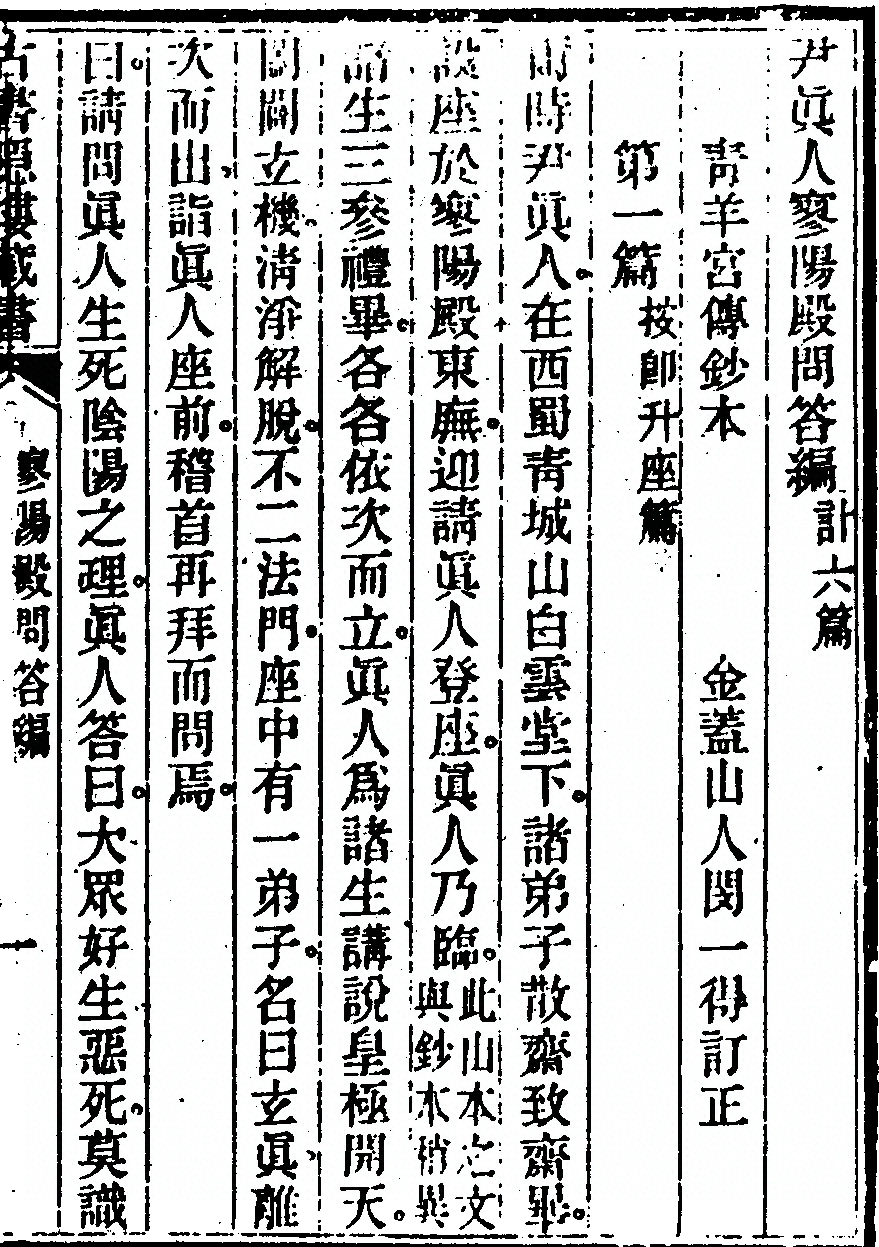 尹眞人寥陽殿問答編計六篇
靑羊宮傳鈔本 金蓋山人閔一得訂正
第一篇按卽升座篇
爾時尹眞人。在西蜀靑城山白雲堂下。諸弟子散齋致齋畢。
設座於寥陽殿東廡。迎請眞人登座。眞人乃臨。此山本之文與鈔本稍異
諸生三參禮畢。各各依次而立。眞人爲諸生講說皇極開天。
闔闢玄機。淸淨解脫。不二法門。座中有一弟子。名曰玄眞、離
次而出、詣眞人座前。稽首再拜而問焉。
曰。請問眞人生死陰陽之理。眞人答曰。大眾好生惡死。莫識
古書隱樓藏書
寥陽殿問答編
一